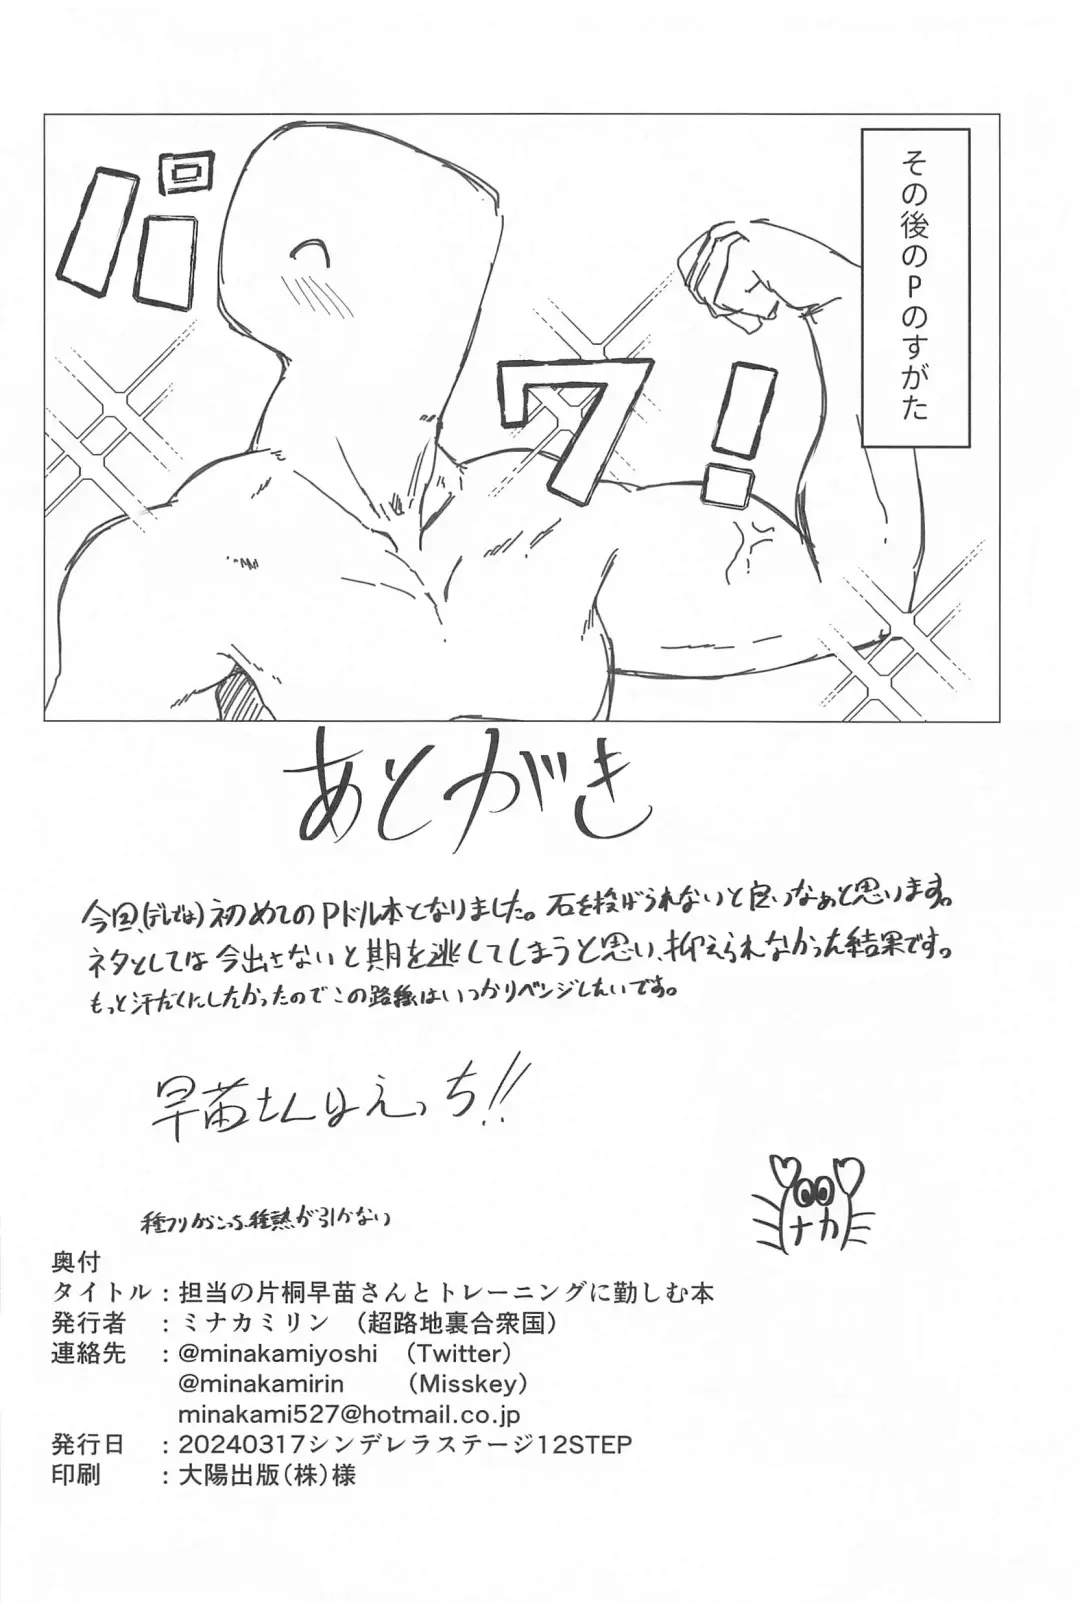 その後のPのすがた
パワー!
あとがき
今回、(デレでは)初めてのPドル本となりました。石を投げられないと良いなぁと思います。
ネタとしては今出さないと期を逃してしまうと思い、抑えられなかった結果です。
もっと汗だくにしたかったのでこの路線はいつかリベンジしたいです。
早苗さんはえっち!!
ミナカ
種フリがこっち、種熱が引かない
奥付
タイトル:担当の片桐早苗さんとトレーニングに勤しむ本
発行者 :ミナカミリン (超路地裏合衆国)
連絡先 :@minakamiyoshi (Twitter)
@minakamirin (Misskey)
minakami527@hotmail.co.jp
発行日 :20240317シンデレラステージ12STEP
印刷 :大陽出版(株)様